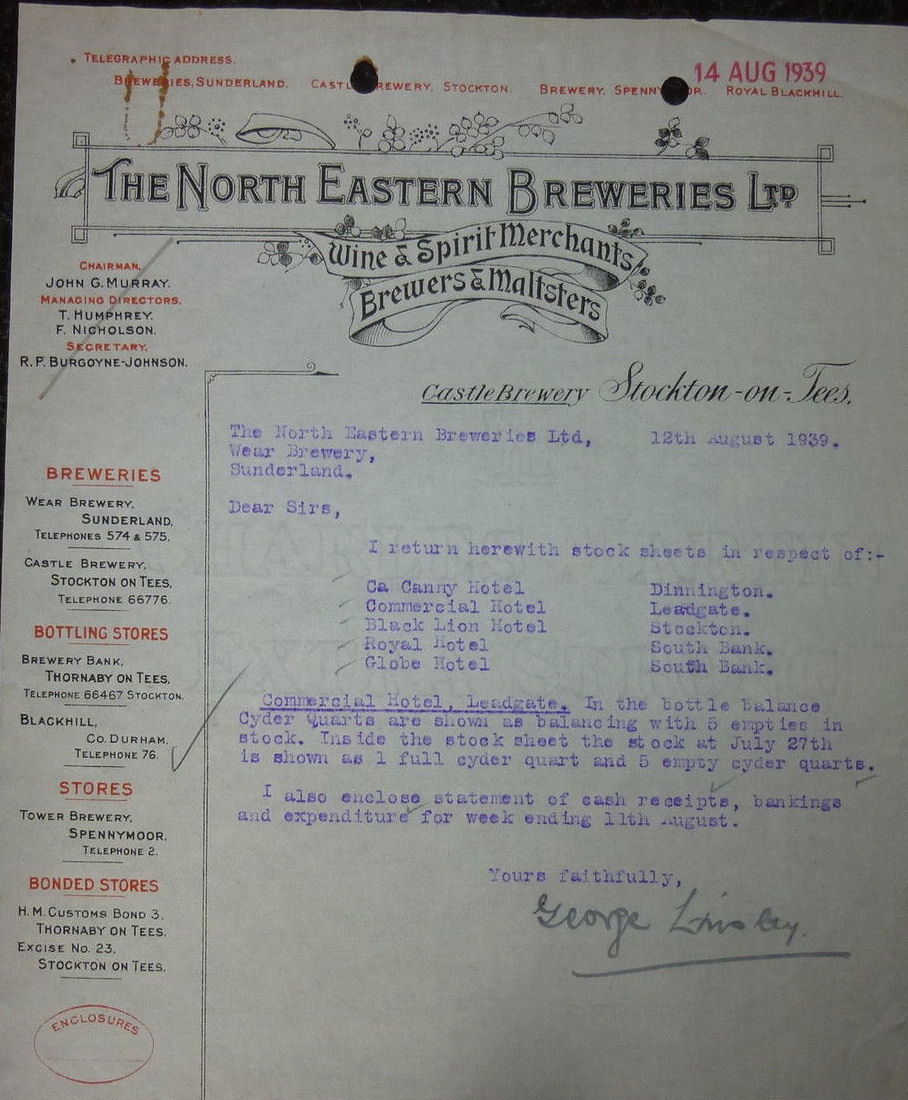 TELEGRAPHIC ADDRESS.
14 AUG 1939
BREWERIES, SUNDERLAND. CASTLE BREWERY, STOCKTON. BREWERY, SPENNYMOOR. ROYAL BLACKHILL.
THE NORTH EASTERN BREWERIES LTD
Wine & Spirit Merchants,
Brewers & Maltsters
CHAIRMAN,
JOHN G. MURRAY.
MANAGING DIRECTORS,
T. HUMPHREY.
F. NICHOLSON.
SECRETARY,
R. P. BURGOYNE-JOHNSON.
Castle Brewery Stockton-on-Tees,
The North Eastern Breweries Ltd, 12th August 1939.
Wear Brewery,
Sunderland.
Dear Sirs,
I return herewith stock sheets in respect of:-
Ca Canny Hotel Dinnington.
Commercial Hotel Leadgate.
Black Lion Hotel Stockton.
Royal Hotel South Bank.
Globe Hotel South Bank.
Commercial Hotel, Leadgate. In the bottle balance
Cyder Quarts are shown as balancing with 5 empties in
stock. Inside the stock sheet the stock at July 27th
is shown as 1 full cyder quart and 5 empty cyder quarts.
I also enclose statement of cash receipts, bankings
and expenditure for week ending 11th August.
Yours faithfully,
George Linsley.
BREWERIES
WEAR BREWERY,
SUNDERLAND,
TELEPHONES 574 & 575.
CASTLE BREWERY,
STOCKTON ON TEES,
TELEPHONE 66776.
BOTTLING STORES
BREWERY BANK,
THORNABY ON TEES,
TELEPHONE 66467 STOCKTON.
BLACKHILL,
CO. DURHAM.
TELEPHONE 76.
STORES
TOWER BREWERY,
SPENNYMOOR,
TELEPHONE 2.
BONDED STORES
H. M. CUSTOMS BOND 3.
THORNABY ON TEES.
EXCISE NO. 23,
STOCKTON ON TEES.
ENCLOSURES